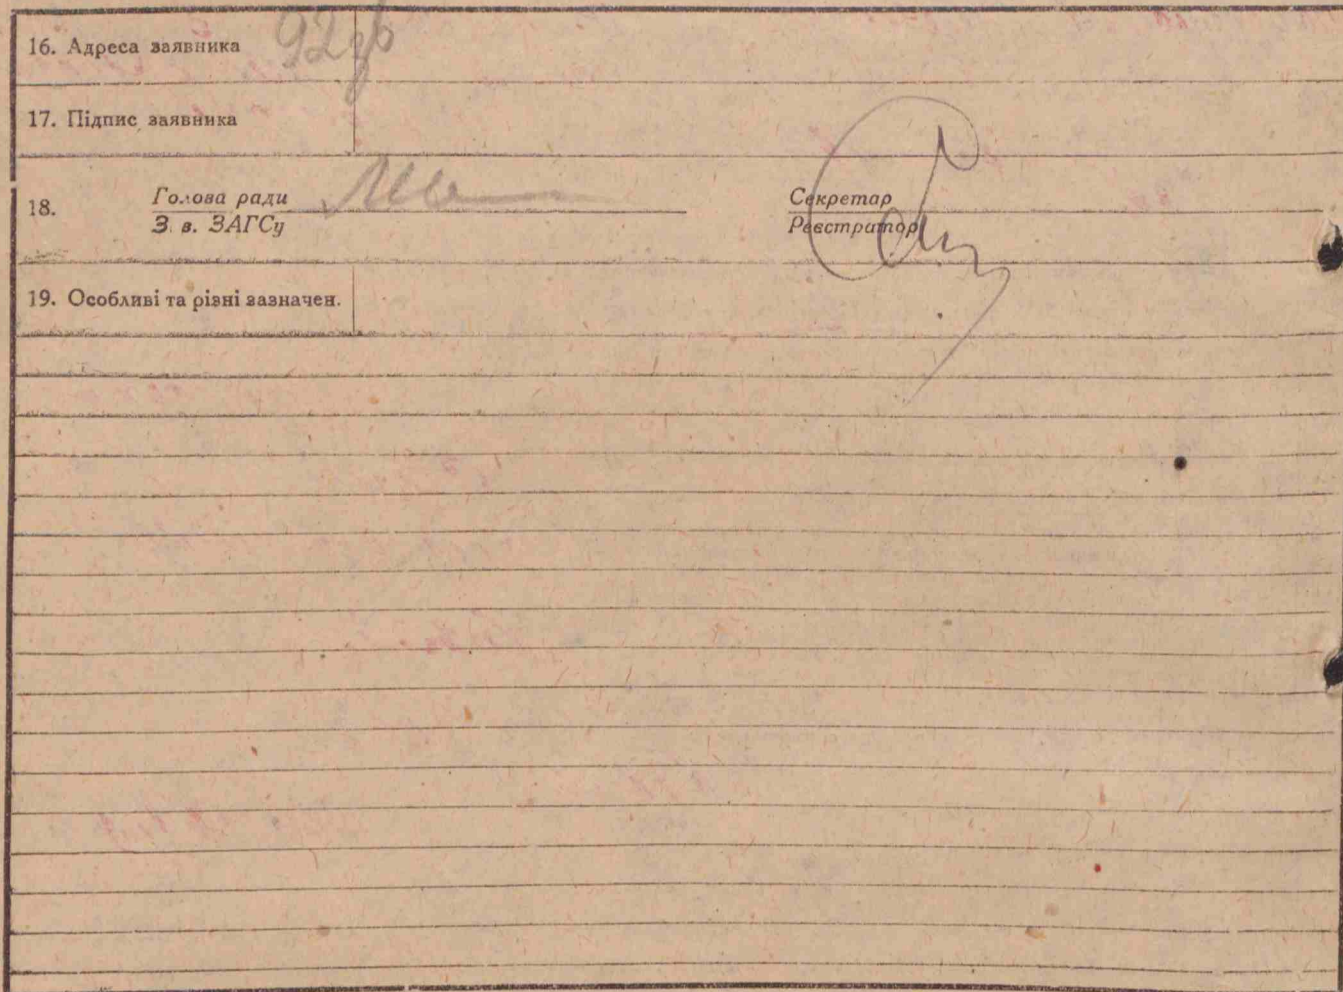 16. Адреса заявника 92зв
17. Підпис заявника
18. Голова ради Секретар
З в. ЗАГСу Реєстратор
19. Особливі та різні зазначен.